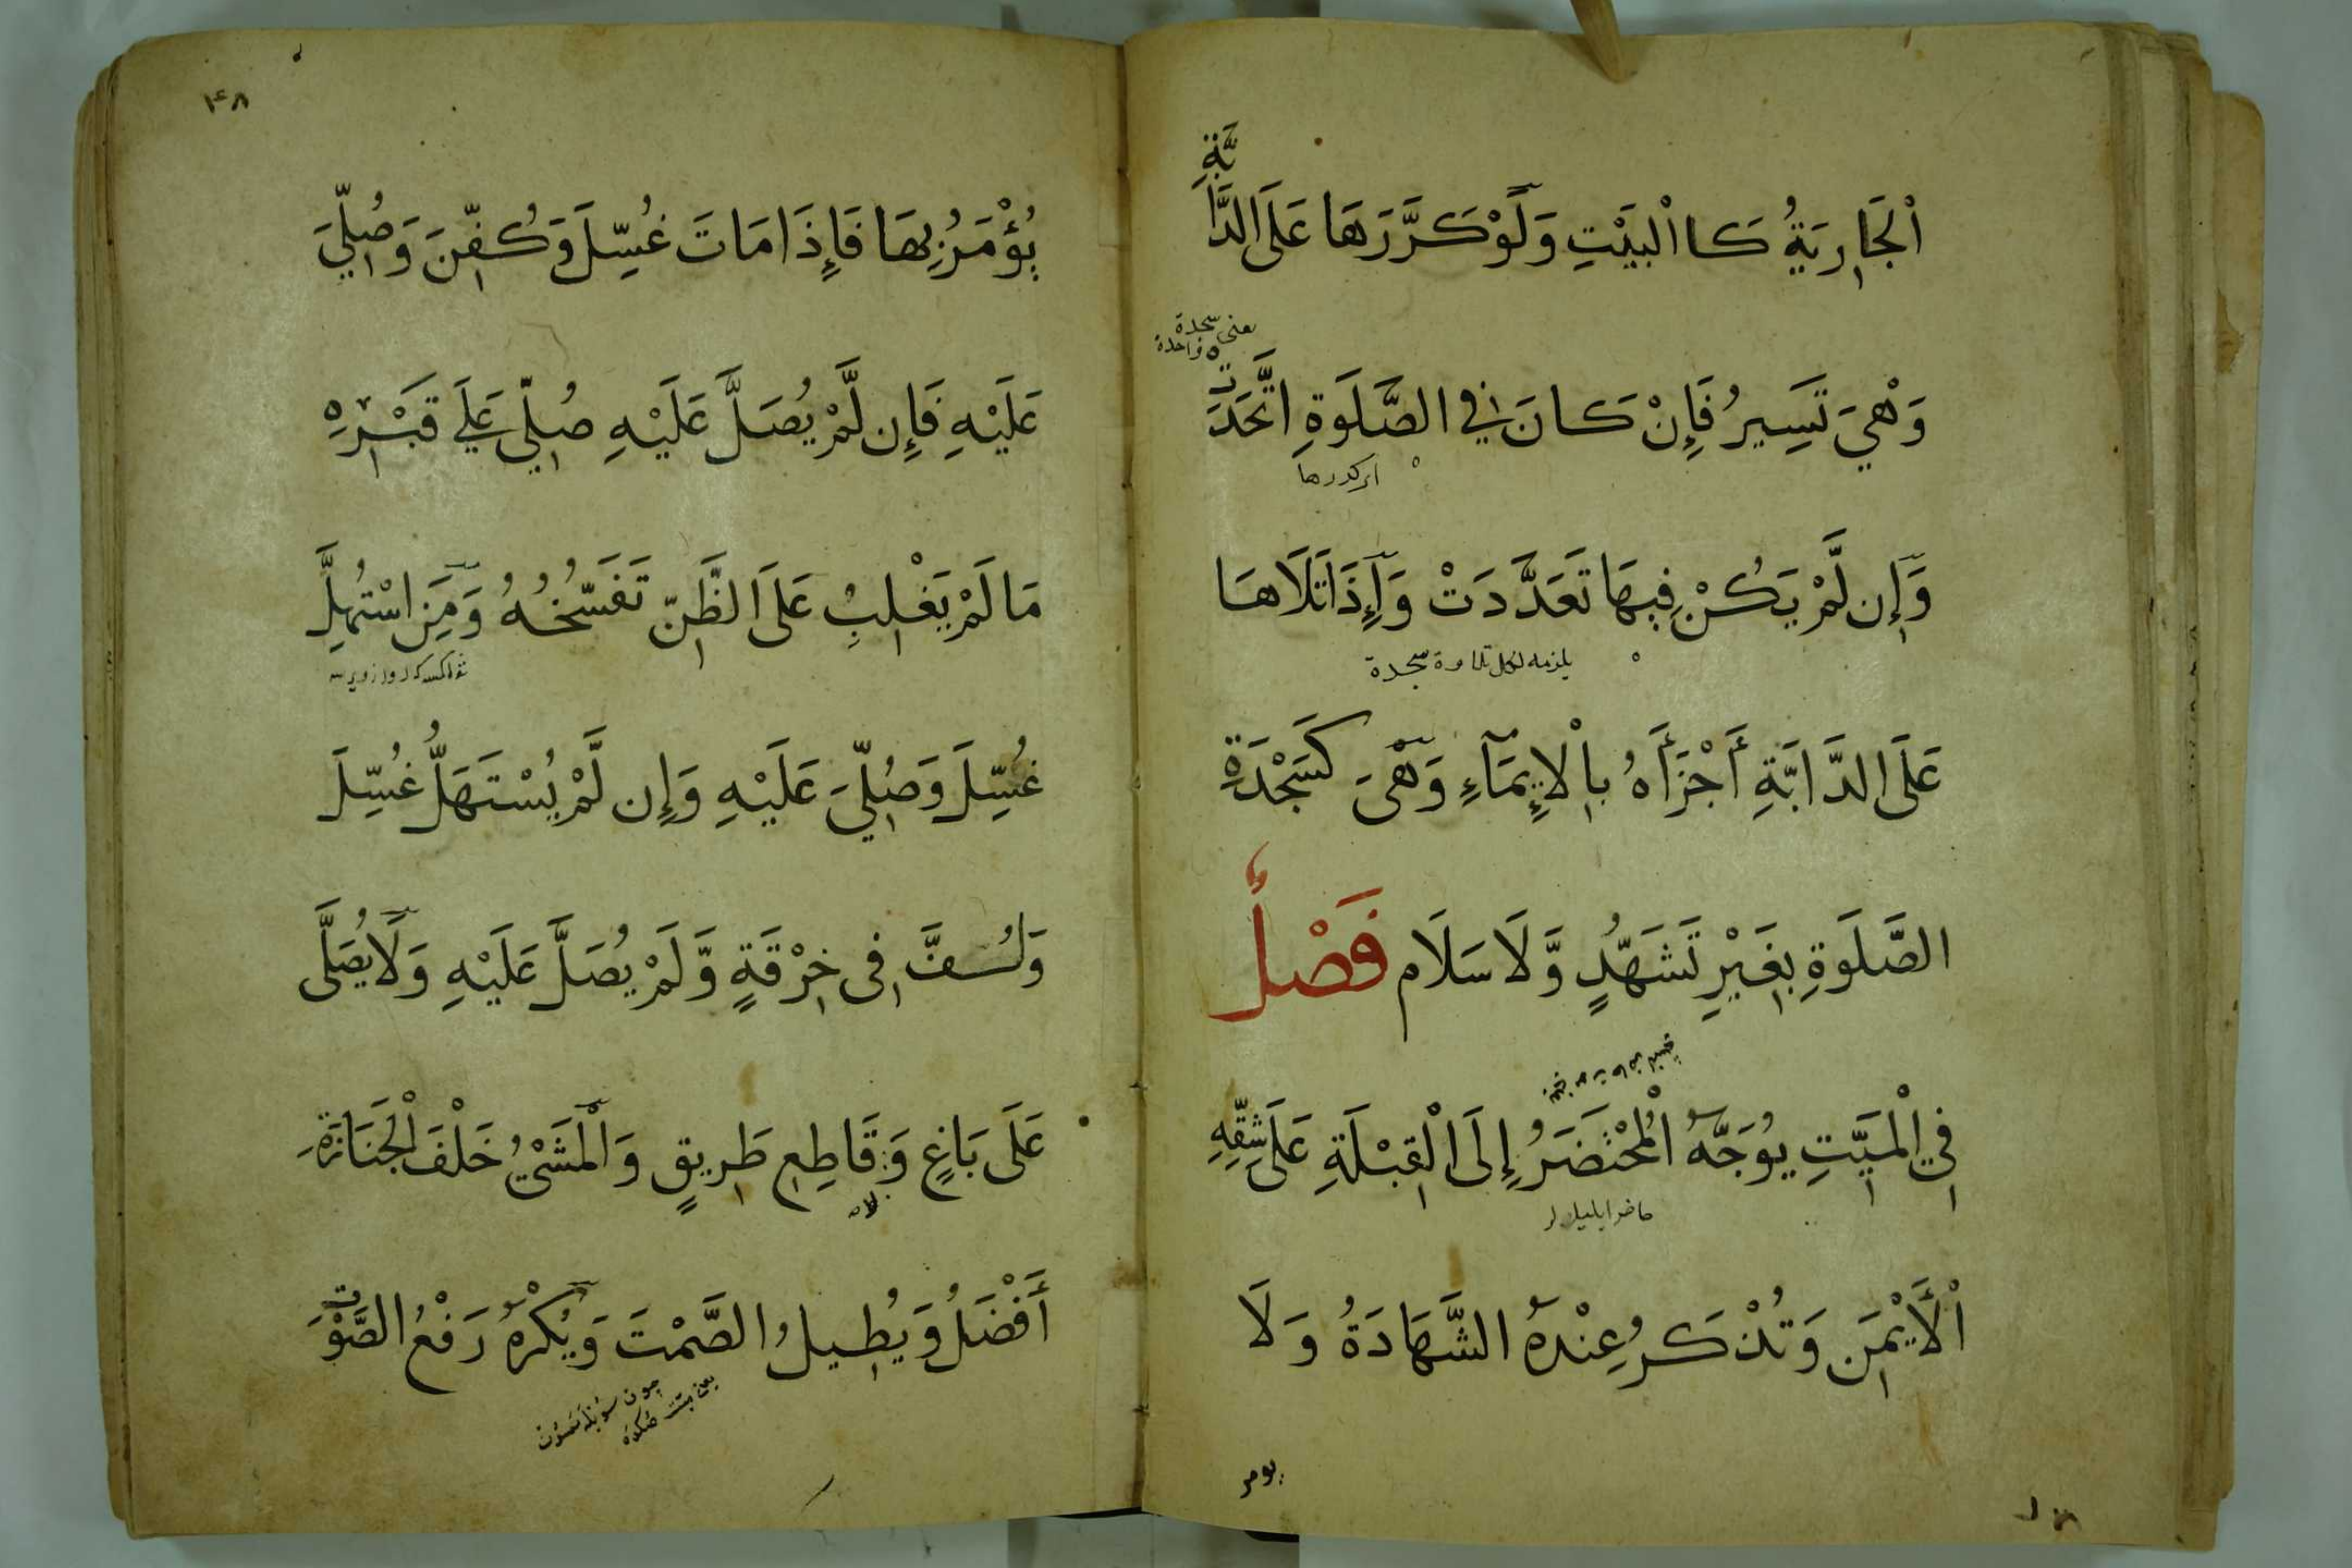 اَلْجَارِيَةُ كَا الْبَيْتِ وَلَوْ كَرَّرَهَا عَلَى الدَّابَّةِ
يعنى سجدة واحدة
وَهْيَ تَسِيرُ فَإِنْ كَانَ فِي الصَّلَوةِ اتَّحَدَتْ
وَإِن لَّمْ يَكُنْ فِيهَا تَعَدَّدَتْ وَإِذَا تَلَاهَا
يلزمه لكل تلاوة سجدة
عَلَى الدَّابَّةِ أَجْزَأَهُ بِالْإِيمَاءِ وَهْيَ كَسَجْدَةِ
الصَّلَوةِ بِغَيْرِ تَشَهُّدٍ وَّلَا سَلَام فَصْلٌ
فِي الْمَيِّتِ يُوَجَّهُ الْمُحْتَضَرُ إِلَى الْقِبْلَةِ عَلَى شِقِّهِ
الْأَيْمَنِ وَتُذْكَرُ عِنْدَهُ الشَّهَادَةُ وَلَا
يومر
۴۸
يُؤْمَرُ بِهَا فَإِذَا مَاتَ غُسِّلَ وَكُفِّنَ وَصُلِّيَ
عَلَيْهِ فَإِن لَّمْ يُصَلَّ عَلَيْهِ صُلِّيَ عَلَى قَبْرِهِ
مَا لَمْ يَغْلِبْ عَلَى الظَّنِّ تَفَسُّخُهُ وَمَنِ اسْتُهِلَّ
غُسِّلَ وَصُلِّيَ عَلَيْهِ وَإِن لَّمْ يُسْتَهَلَّ غُسِّلَ
وَلُفَّ فِي خِرْقَةٍ وَّلَمْ يُصَلَّ عَلَيْهِ وَلَا يُصَلَّى
عَلَى بَاغٍ وَقَاطِعِ طَرِيقٍ وَالْمَشْيُ خَلْفَ الْجَنَازَةِ
أَفْضَلُ وَيُطِيلُ الصَّمْتَ وَيُكْرَهُ رَفْعُ الصَّوْتِ